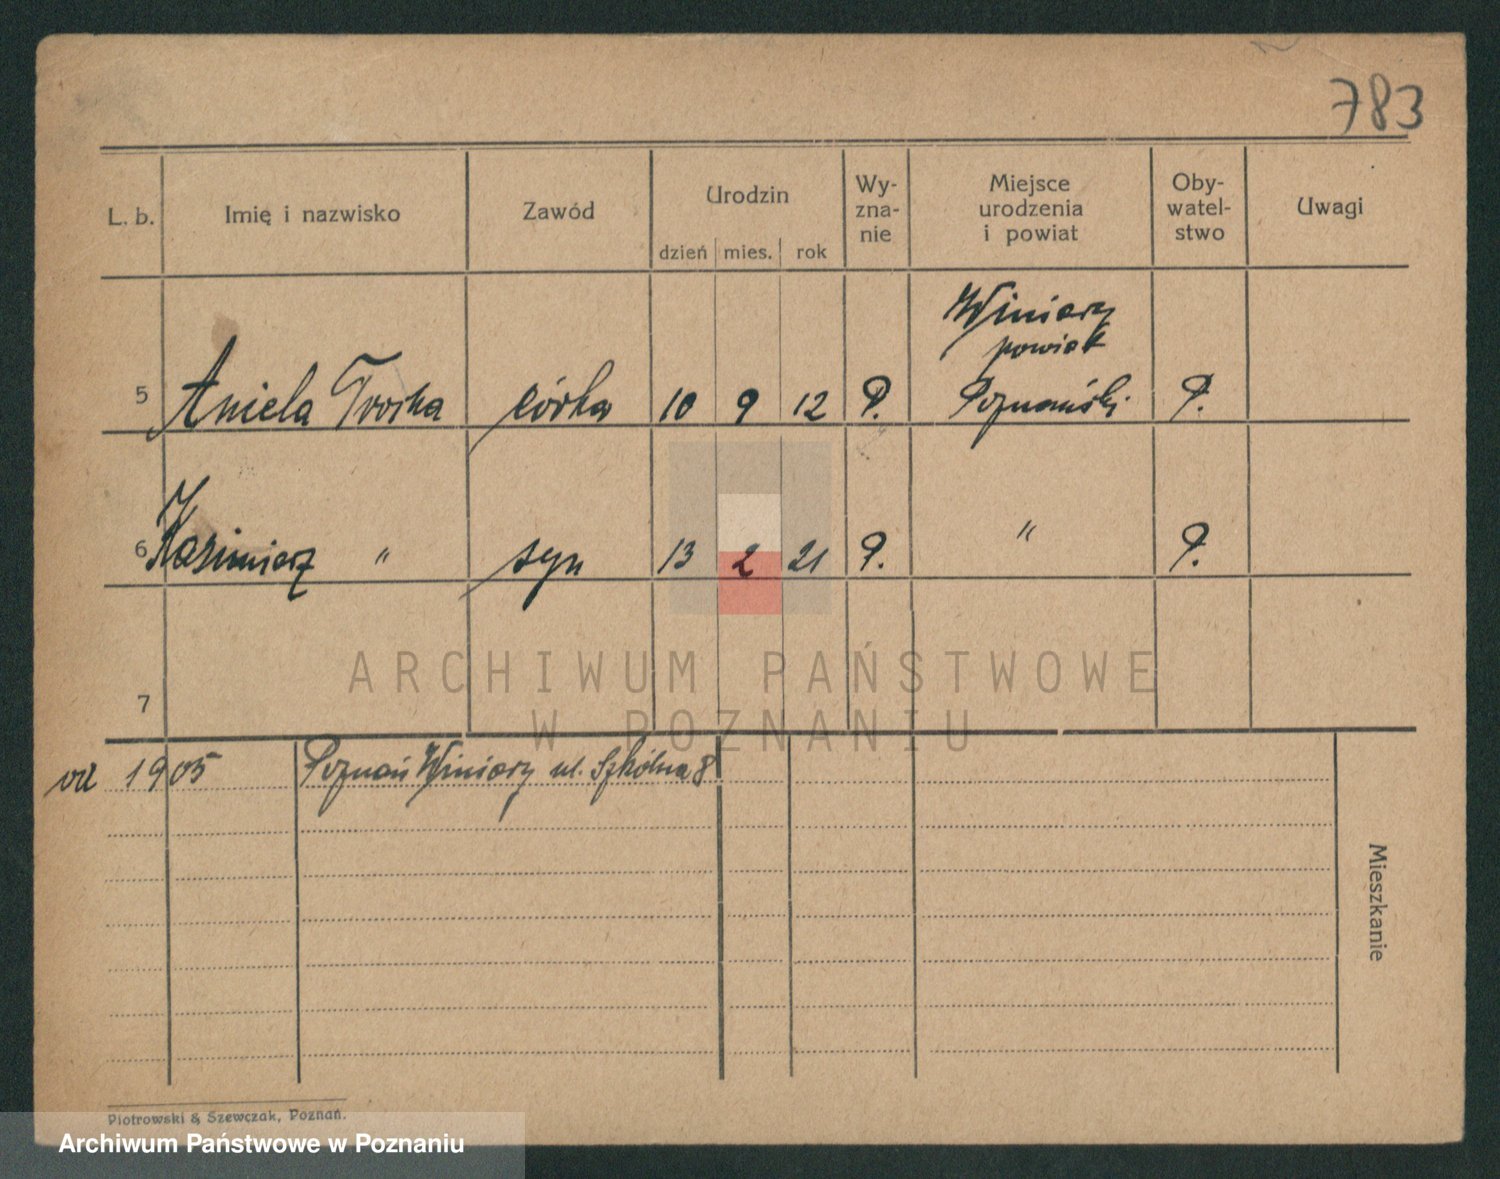 783
L. b. Imię i nazwisko Zawód Urodzin Wy-zna-nie Miejsce urodzenia i powiat Oby-watel-stwo Uwagi
dzień mies. rok
Winiary
powiat
5 Aniela córka 10 9 12 P. Poznański P.
6 Kazimierz " syn 13 2 21 P. " P.
7
ARCHIWUM PAŃSTWOWE
W POZNANIU
od 1905 Poznań Winiary ul. Szkólna 8
Mieszkanie
Piotrowski & Szewczak, Poznań.
Archiwum Państwowe w Poznaniu